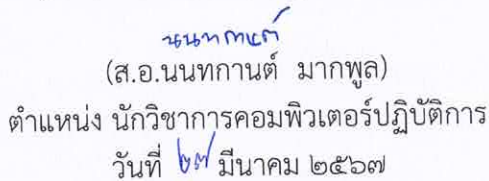 นนทกานต์
(ส.อ.นนทกานต์ มากพูล)
ตำแหน่ง นักวิชาการคอมพิวเตอร์ปฏิบัติการ
วันที่ ๒๗ มีนาคม ๒๕๖๗